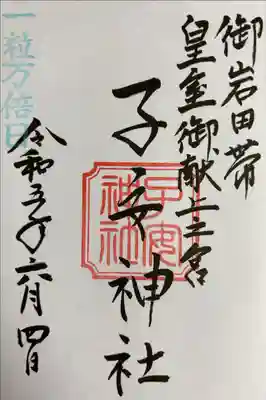 御岩田帯
皇室御献上之宮
子安神社
子安
神社
令和五年六月四日
一粒万倍日